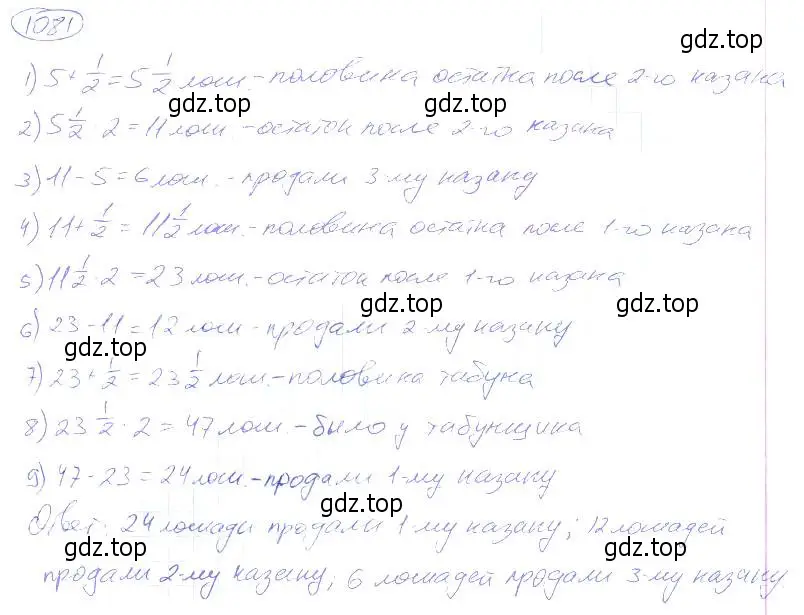 1081
gdz.top
1) 5 + 1/2 = 5 1/2 лош. - половина остатка после 2-го казака
gdz.top gdz.top
2) 5 1/2 · 2 = 11 лош. - остаток после 2-го казака
3) 11 - 5 = 6 лош. - продали 3-му казаку
4) 11 + 1/2 = 11 1/2 лош. - половина остатка после 1-го казака
5) 11 1/2 · 2 = 23 лош. - остаток после 1-го казака
gdz.top gdz.top
6) 23 - 11 = 12 лош. - продали 2-му казаку
gdz.top
7) 23 + 1/2 = 23 1/2 лош. - половина табуна
8) 23 1/2 · 2 = 47 лош. - было у табунщика
9) 47 - 23 = 24 лош. - продали 1-му казаку
gdz.top
Ответ: 24 лошади продали 1-му казаку; 12 лошадей
gdz.top gdz.top
продали 2-му казаку; 6 лошадей продали 3-му казаку